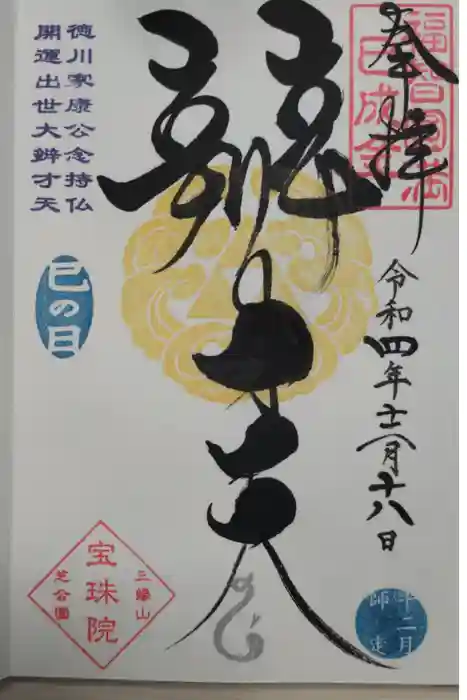 奉拝
福智圓満
巳成金
令和四年十二月十八日
十二月
師走
辨才天
徳川家康公念持仏
開運出世大辨才天
巳の日
三縁山
宝珠院
芝公園